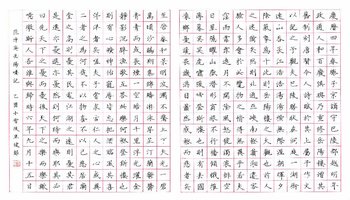 慶曆四年春滕子京謫守巴陵郡越明年
政通人和百廢具興乃重修岳陽樓增其
舊制刻唐賢今人詩賦於其上屬予作文
以記之予觀夫巴陵勝狀在洞庭一湖銜
遠山吞長江浩浩湯湯橫無際涯朝暉夕
陰氣象萬千此則岳陽樓之大觀也前人
之述備矣然則北通巫峽南極瀟湘遷客
騷人多會於此覽物之情得無異乎若夫
霪雨霏霏連月不開陰風怒號濁浪排空
日星隱曜山岳潛形商旅不行檣傾楫摧
薄暮冥冥虎嘯猿啼登斯樓也則有去國
懷鄉憂讒畏譏滿目蕭然感極而悲者矣
至若春和景明波瀾不驚上下天光一碧
萬頃沙鷗翔集錦鱗游泳岸芷汀蘭鬱鬱
青青而或長煙一空皓月千里浮光耀金
靜影沉璧漁歌互答此樂何極登斯樓也
則有心曠神怡寵辱偕忘把酒臨風其喜
洋洋者矣嗟夫予嘗求古仁人之心或異
二者之為何哉不以物喜不以己悲居廟
堂之高則憂其民處江湖之遠則憂其君
是進亦憂退亦憂然則何時而樂耶其必
曰先天下之憂而憂後天下之樂而樂乎
噫微斯人吾誰與歸時六年九月十五日
范仲淹岳陽樓記